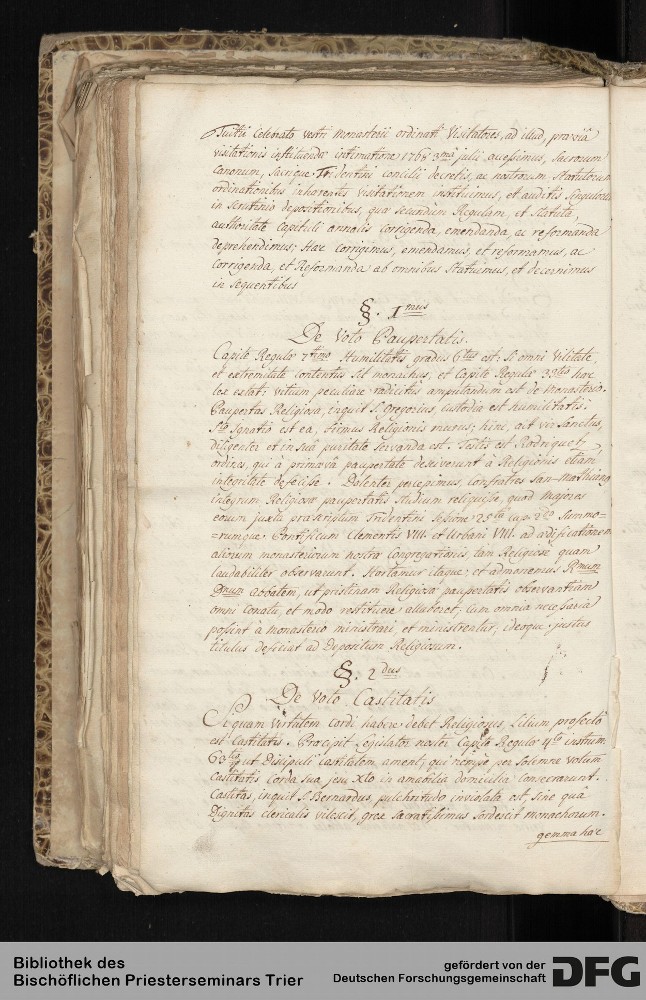 Tuitti Celebrato vestri Monasterii ordinati Visitatores, ad illud, præviâ
visitationis instituendæ intimatione 1768 3tiâ julii accessimus, Sacrorum
Canonum, Sacrique Tridentini concilii decretis, ac nostrorum Statutorum
ordinationibus inhærentes visitationem instituimus, et auditis Singulorum
in Scrutinio depositionibus, quæ secundum Regulam, et Statuta,
authoritate Capituli annalis corrigenda, emendanda, ac reformanda
deprehendimus; Hæc corrigimus, emendamus, et reformamus, ac
Corrigenda, et Reformanda ab omnibus Statuimus, et decernimus
in Sequentibus
§. 1mus
De Voto Paupertatis.
Capite Regulæ 7timo Humilitatis gradus 6tus est: Si omni Vilitate,
et extremitate contentus sit monachus, et Capite Regulæ 33tio hæc
lex extat: vitium peculiare radicitus amputandum est de Monasterio.
Paupertas Religiosa, inquit S. Gregorius, Custodia est humilitatis.
Sto Ignatio est ea, firmus Religionis murus; hinc, ait vir Sanctus,
diligenter et in suâ puritate servanda est. Testis est Rodriquez,
ordines, qui à primævâ paupertate desciverunt à Religionis etiam
integritate defecisse. Dolenter percepimus, Confratres San-Mathianos
integrum Religiosæ paupertatis Studium reliquisse, quod Majores
eorum juxta præscriptum Tridentini Sessione 25ta cap. 2do Summo-
=rumque Pontificum Clementis VIII. et Urbani VIII. ad ædificationem
aliorum monasteriorum nostræ Congregationis, tam Religiosè quam
laudabiliter observarunt. Hortamur itaque, et admonemus Rmum
Dnum abbatem, ut pristinam Religiosæ paupertatis observantiam
omni Conatu, et modo restituere allaboret; Cum omnia necessaria
possint à Monasterio ministrari, et ministrentur, ideoque justus
titulus deficiat ad Depositum Religiosum.
§. 2dus
De Voto Castitatis
Si quam Virtutem Cordi habere debet Religiosus, Lilium profectò
est Castitatis. Præcipit Legislator noster Capite Regulæ 4to instrum.
63tio ut Discipuli castitatem ament; qui nempe per Solemne votum
Castitatis Corda sua Jesu Xto in amabilia domicilia Consecrarunt.
Castitas, inquit S. Bernardus, pulchritudo inviolata est, sine quâ
Dignitas clericalis vilescit, grex sacratissimus Sordescit monachorum.
gemma hæc
Bibliothek des
Bischöflichen Priesterseminars Trier
gefördert von der
Deutschen Forschungsgemeinschaft
DFG